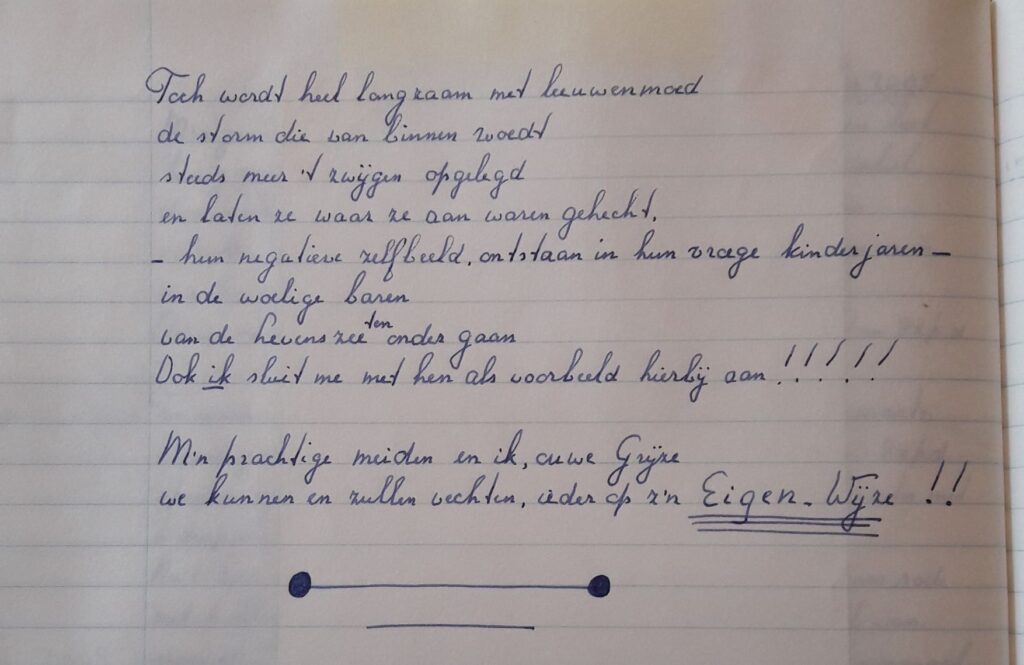 Toch wordt heel langzaam met leeuwenmoed
de storm die van binnen woedt
steeds meer 't zwijgen opgelegd
en laten ze waar ze aan waren gehecht,
- hun negatieve zelfbeeld, ontstaan in hun vroege kinderjaren -
in de woelige baren
van de levenszee ten onder gaan
Ook ik sluit me met hen als voorbeeld hierbij aan !!!!!!
M'n prachtige meiden en ik, ouwe Grijze
we kunnen en zullen vechten, ieder op z'n Eigen-Wijze !!